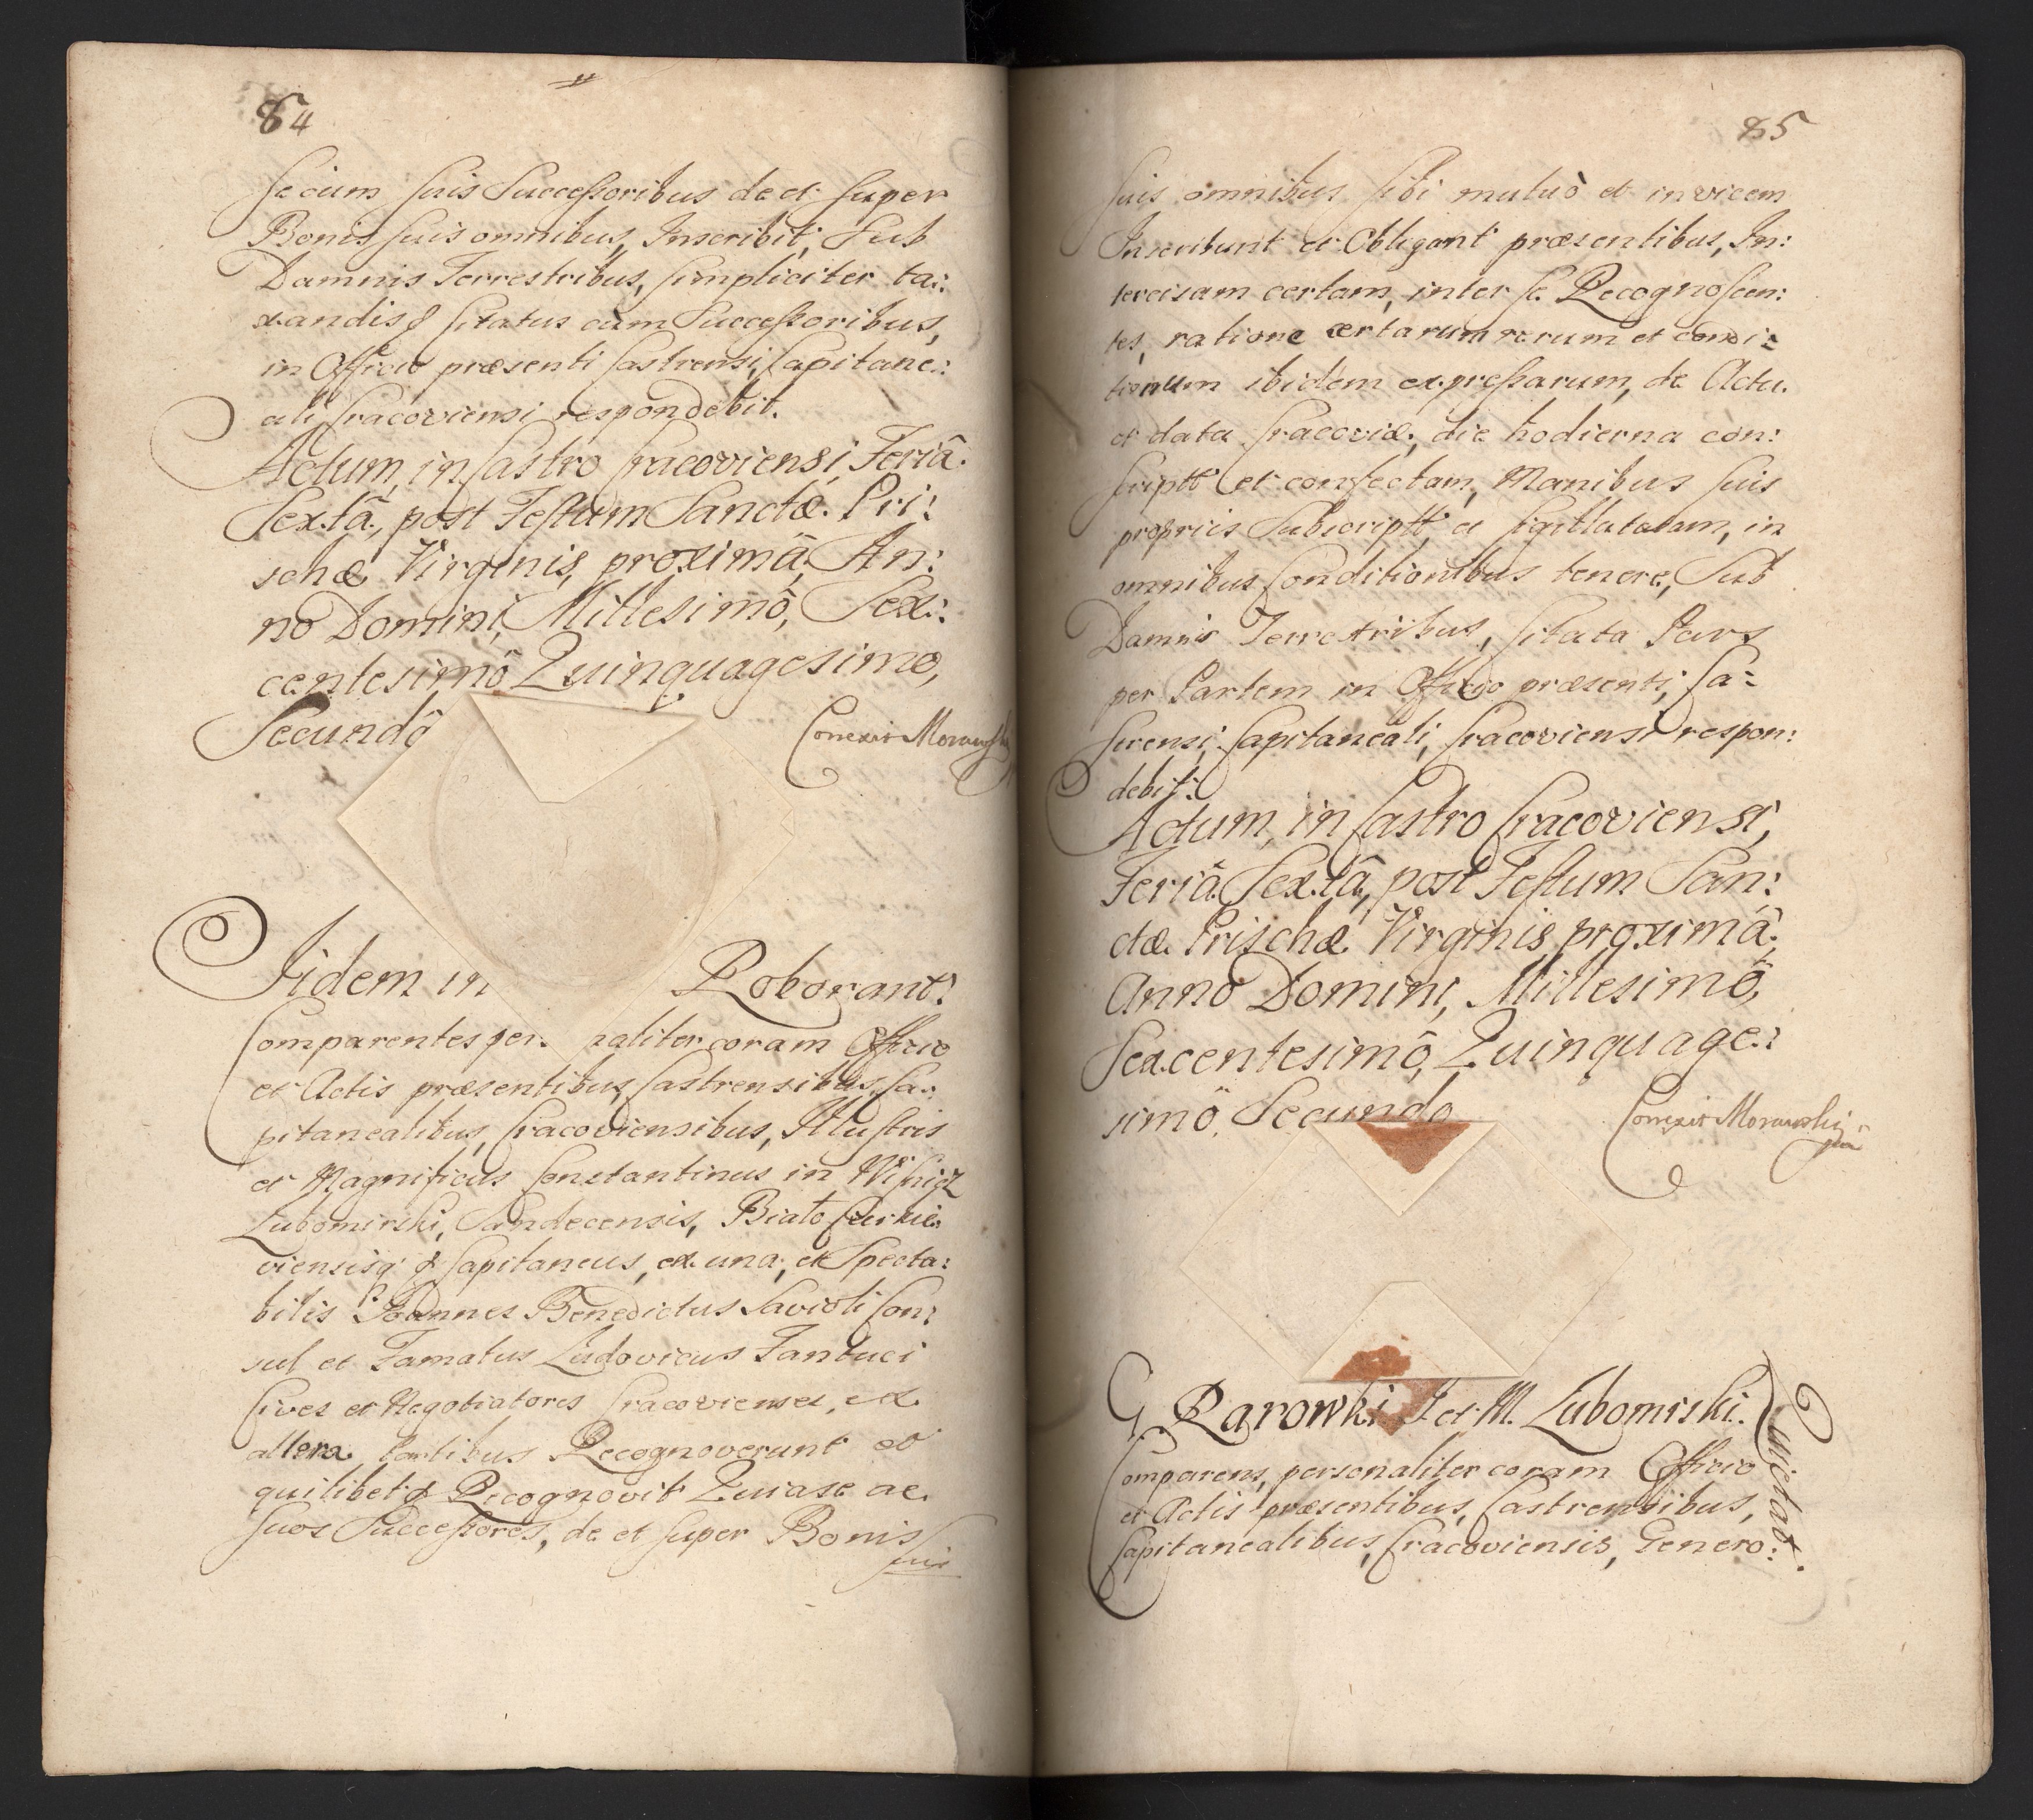 84
se cum suis Successoribus de et super
Bonis suis omnibus, Inscribit, Sub
Damnis Terrestribus, simpliciter ta:
xandis, Citatus cum Successoribus,
in Officio præsenti Castrensi, Capitane:
ali Cracoviensi respondebit.
Actum, in Castro Cracoviensi, Feriâ
Sextâ, post Festum Sanctæ Pri:
schæ Virginis, proximâ, An:
no Domini, Millesimô, Sex:
centesimô Quinquagesimo,
Secundô
Correxit Morawski
Jidem in Roborant:
Comparentes per naliter coram Officio
et Actis præsentibus, Castrensibus, Ca:
pitanealibus, Cracoviensibus, Illustris
et Magnificus Constantinus in Wisnicz
Lubomirski, Sandecensis, Biało
viensisq Capitaneus, ex una, et Specta:
bilis Joannes Benedictus Savioli Con:
sul et Famatus Ludovicus Fantuci
Cives et Negotiatores Cracovienses, ex
altera Partibus Recognoverunt et
quilibet Recognovit Quia se ac
suos Successores, de et super Bonis
suis
85
suis omnibus sibi mutuò et invicem
Inscribunt et Obligant præsentibus, In:
tercisam certam, inter se Recognoscen:
tes, ratione certarum rerum et condi:
tionum ibidem expressarum, de Actu
et data Cracoviæ, die hodierna con:
scriptt et confectam, Manibus suis
propriis Subscriptt, et sigillatam, in
omnibus Conditionibus tenere, Sub
Damnis Terrestribus, Citata Pars
per Partem in Officio præsenti, Ca:
strensi, Capitaneali, Cracoviensi respon:
debit:
Actum, in Castro Cracoviensi,
Feriâ Sextâ, post Festum San:
ctæ Prischæ Virginis, proximâ,
Anno Domini, Millesimô,
Sexcentesimô, Quinquage:
simô, Secundo
Correxit Morawski
G Rarowski I. et M. Lubomirski. Quietat.
Comparens, personaliter coram Officio
et Actis præsentibus, Castrensibus,
Capitanealibus, Cracoviensis, Genero: